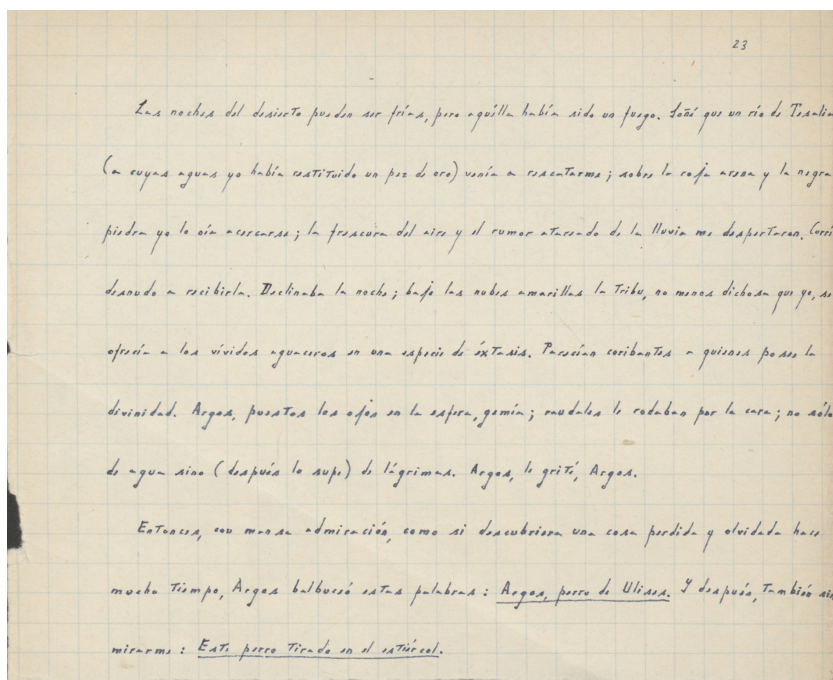 23
Las noches del desierto pueden ser frías, pero aquélla había sido un fuego. Soñé que un río de Tesalia
(a cuyas aguas yo había restituido un pez de oro) venía a rescatarme; sobre la roja arena y la negra
piedra yo lo oía acercarse; la frescura del aire y el rumor atareado de la lluvia me despertaron. Corrí
desnudo a recibirla. Declinaba la noche; bajo las nubes amarillas la Tribu, no menos dichosa que yo, se
ofrecía a los vívidos aguaceros en una especie de éxtasis. Parecían coribantes a quienes posee la
divinidad. Argos, puestos los ojos en la esfera, gemía; raudales le rodaban por la cara; no sólo
de agua sino (después lo supe) de lágrimas. Argos, le grité, Argos.
Entonces, con mansa admiración, como si descubriera una cosa perdida y olvidada hace
mucho tiempo, Argos balbuceó estas palabras: Argos, perro de Ulises. Y después, también sin
mirarme: Este perro tirado en el estiércol.